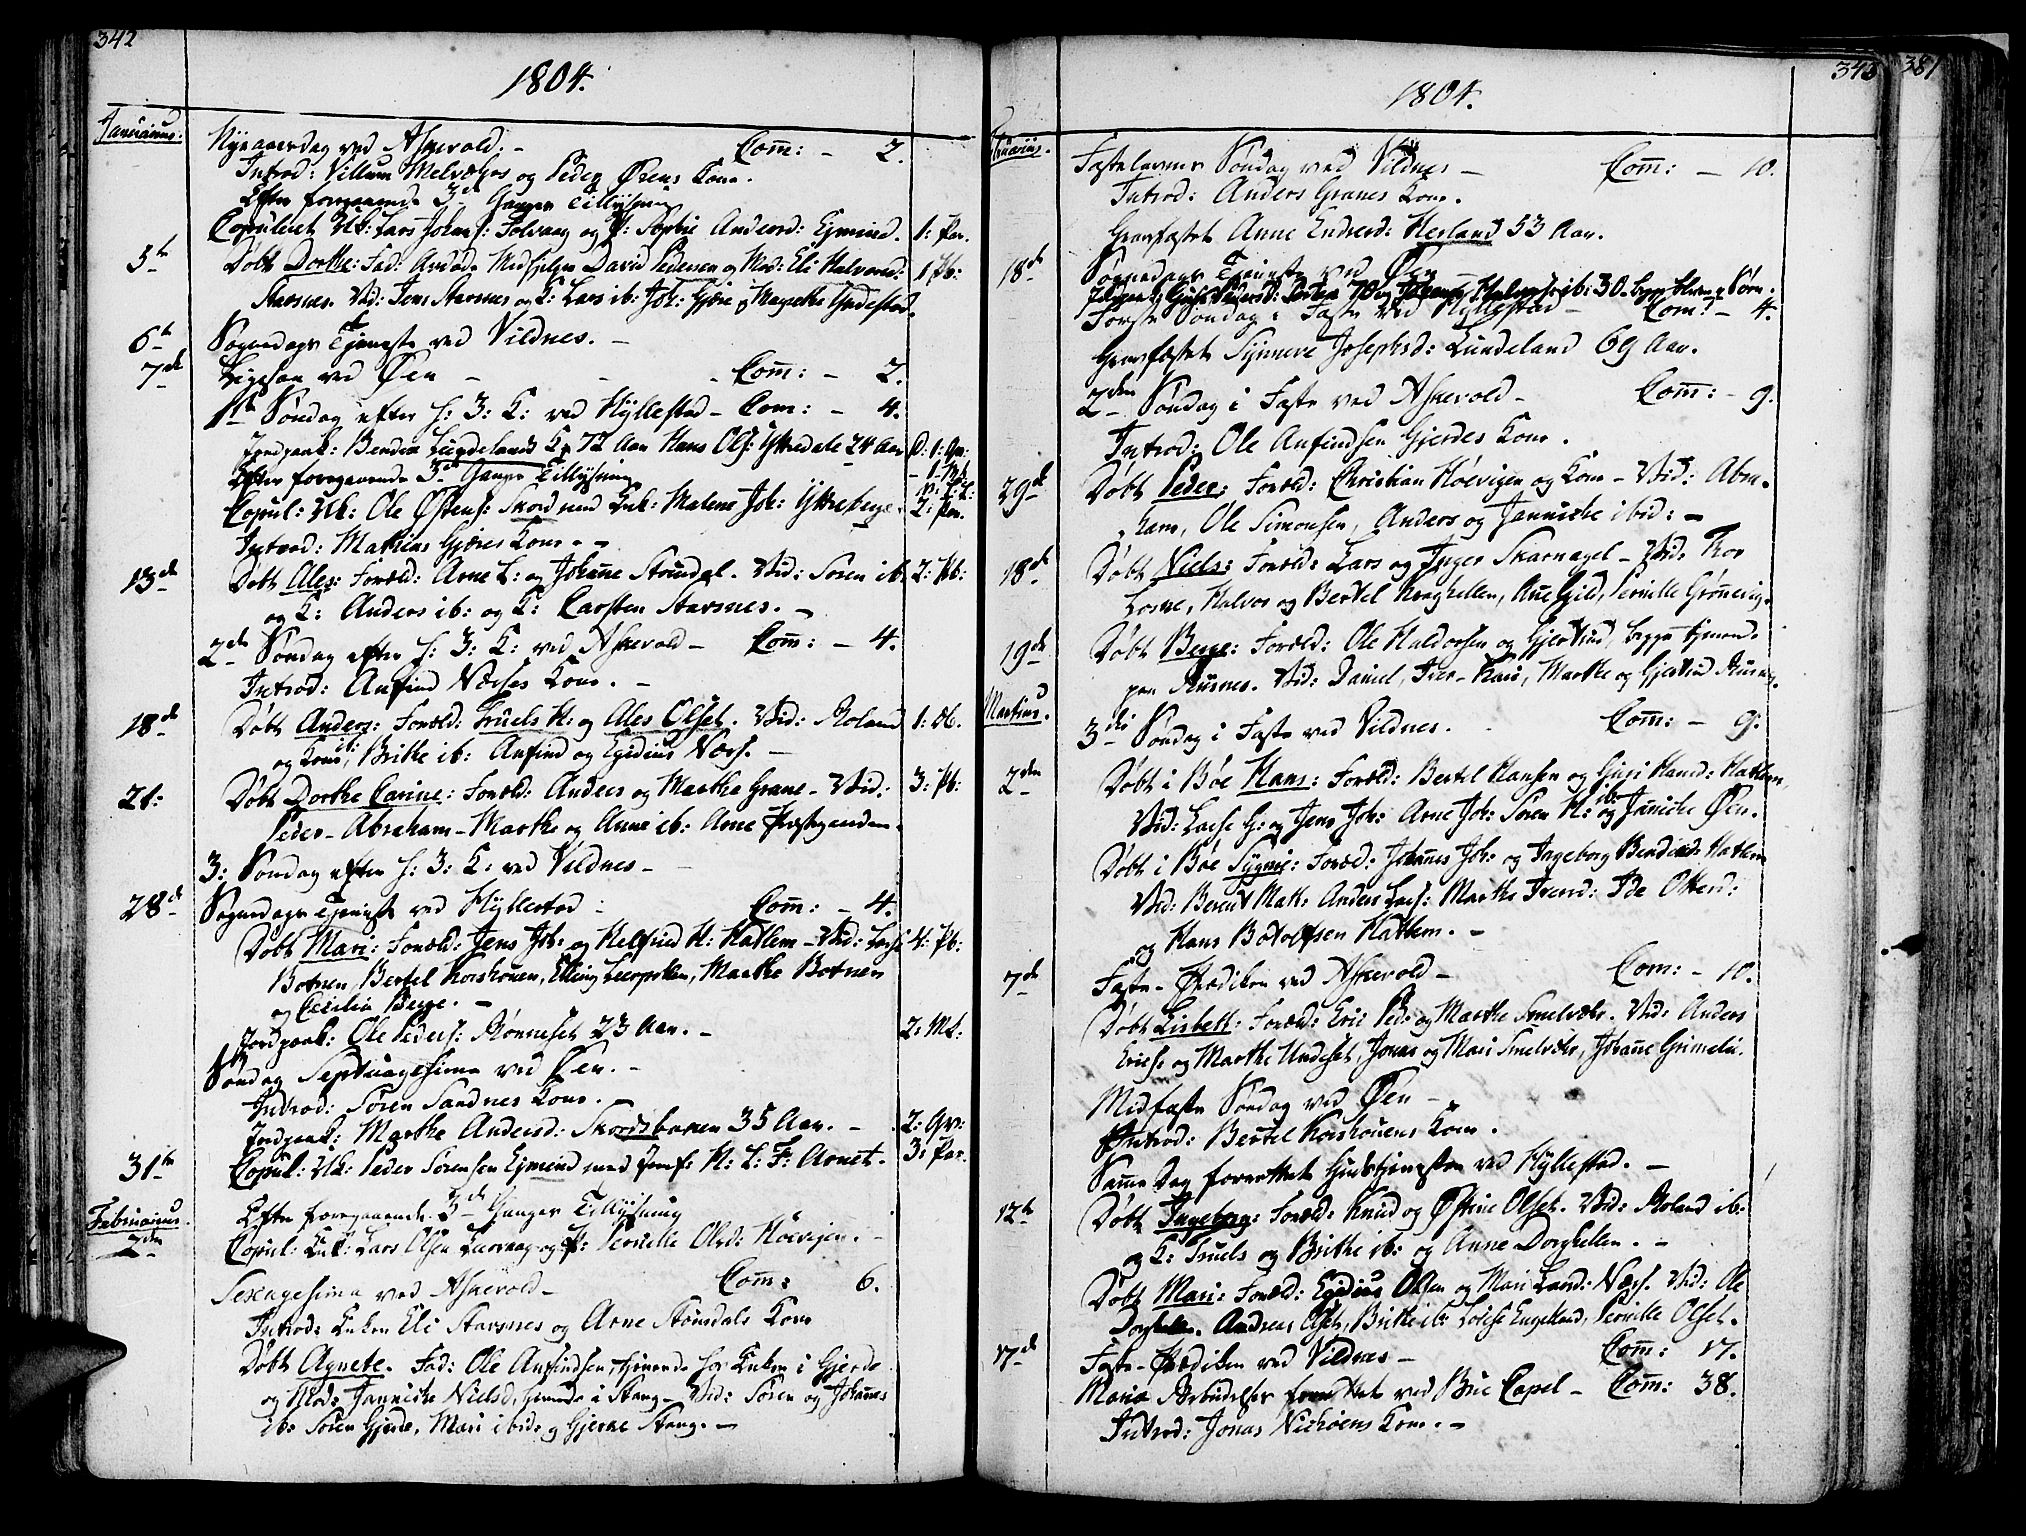 342
1804.
Januarius.
Nyeaarsdag ved Askevold. - Com: - 2.
Introd: Villum Melværs og Peder Ørens Kone.
Efter foregaaende 3de Ganger Tillysning
Copuleret Uk: Lars Johans: Folvaag og P: Sophie Andersd: Ejmind. 1: Par.
5te Døbt Dorthe: Fad: David Pedersen og Mod: Eli Halvorsd: 1 Pb:
Starsnes. Vid: Jens Starsnes og K: Lars ib: Joh: Gjøre og Magrethe Yndestad.
6te Sognedags Tjeneste ved Vildnes. -
7de Ligesaa ved Øen - - - Com: - 2.
1te Søndag efter H: 3: K: ved Hyllestad - Com: - 4.
Jordpaak: Lundeland 72 Aar Hans Ols: Yttredale 24 Aar
Efter foregaaende 3de Gange Tillysning
Copul: Uk: Ole Østens: Skord med Enk: Malene Joh: Yttreberge. 2: Par.
Introd: Mathias Gjøres Kone. -
13de Døbt Ales: Foræld: Arne L: og Johanne Støndal. Vid: Søren ib: 2: Pb:
og K: Anders ib: og K: Carsten Starsnes. -
2de Søndag efter H: 3: K: ved Askevold - Com: - 4.
Introd: Anfind Næsses Kone. -
18de Døbt Anders: Foræld: Truels H: og Ales Olset. Vid: Roland 1: Db.
og Kone, Brithe ib: Anfind og Egidius Næss. -
21: Døbt Dorthe Carine: Foræld: Anders og Marthe Grane - Vid: 3: Pb:
Peder - Abraham - Marthe og Anne ib: Arne Præstegaarden.
3: Søndag efter H: 3: K: ved Vildnes -
28de Sognedags Tjeneste ved Hyllestad - Com: - 4.
Døbt Mari: Foræld: Jens Joh: og Helfried H: Hatlem - Vid: 4: Pb:
Botnen, Bertel Korshouen, Elling Leerpollen, Marthe Botnen
og Cecilia Berge. -
Jordpaak: Ole Peders: Rønneset 23 Aar. - 2: Mk:
Søndag Septuagesima ved Øen. -
Introd: Søren Sandnes Kone.
Jordpaak: Marthe Andersd: Skordsbotnen 35 Aar. - 2: Qv:
31te Copul: Uk: Peder Sørensen Ejmind med Jomf: H: L: F: Arnet. 3: Par.
Februarius.
Efter foregaaende 3de Ganger Tillysning
2den Copul: Enk: Lars Olsen og P: Pernille Olsd: Høevigen. -
Sexagesima ved Askevold - Com: 6.
Introd: Enken Eli Starsnes og Arne Stønsdals Kone
Døbt Agnete. Fad: Ole Anfindsen, tjenende hos Enken i Gjerde
og Mod: Jannicke Nielsd, tjenende i Stang - Vid: Søren og Johannes
ib: Søren Gjerde, Mari ibid: og Gjerne Stang. -
343
387
1804.
Fastelavns Søndag ved Vildnes - Com: - 10.
Introd: Anders Granes Kone.
Gravfæstet Anne Endresd: Hesland 53 Aar.
18de Sognedags Tjeneste ved Øen
Første Søndag i Faste ved Hyllestad - Com: - 4.
Gravfæstet Synneve Josephsd: Lundeland 69 Aar.
2den Søndag i Faste ved Askevold - Com: - 9.
Introd: Ole Anfindsen Gjerdes Kone.
29de Døbt Peder: Foræld: Christian Høevigen og Kone - Vid: Abra-
ham, Ole Simonsen, Anders og Jannicke ibid: -
18de Døbt Niels: Foræld: Lars og Inger Skarnagel - Vid: Thor
Losne, Halvor og Bertel Kraghellen, Pernille Grønevig.
19de Døbt Berge: Foræld: Ole Haldorsen og Gjertrud, begge tjenende
paa Rusnes. Vid: Daniel, Iver - Kari, Marthe og Gjertrud
Martius.
3die Søndag i Faste ved Vildnes. Com: - 9:
2den Døbt i Bøe Hans: Foræld: Bertel Hansen og Guri Hansd: Hatlem,
Vid: Lasse G: og Jens Joh: Arne Joh: Søren H: ib: og Jannicke Øen.
Døbt i Bøe Sygni: Foræld: Johannes Joh: og Ingeborg Bendixd: Hatlem
Vid: Berent Math: Anders Lars: Marthe Iversd: Ide Ottersd:
og Hans Botolfsen Hatlem. -
7de Faste-Prædiken ved Askevold - Com: - 10.
Døbt Lisbeth: Foræld: Eric Ped: og Marthe Smelvær. Vid: Anders
Erics: og Marthe Undeset, Jonas og Mari Smelvær, Johanne Grimelie.
Midfaste Søndag ved Øen -
Introd: Bertel Korshouens Kone.
Samme Dag forrettet Gudstjenesten ved Hyllestad. -
12te Døbt Ingeborg: Foræld: Knud og Østine Olset. Vid: Roland ib:
og K: Truels og Brithe ib: og Anne Dorghellen. -
Døbt Mari: Foræld: Egidius Olsen og Mari Larsd: Næss. Vid: Ole
Dorghellen. Andreas Olset, Brithe ib: Lovise Engelund, Pernille Olset.
17de Faste-Prædiken ved Vildnes - Com: 17.
Maria Bebudelse forrettet ved Bue Capel - Com: 38.
Introd: Jonas Nichøens Kone. -